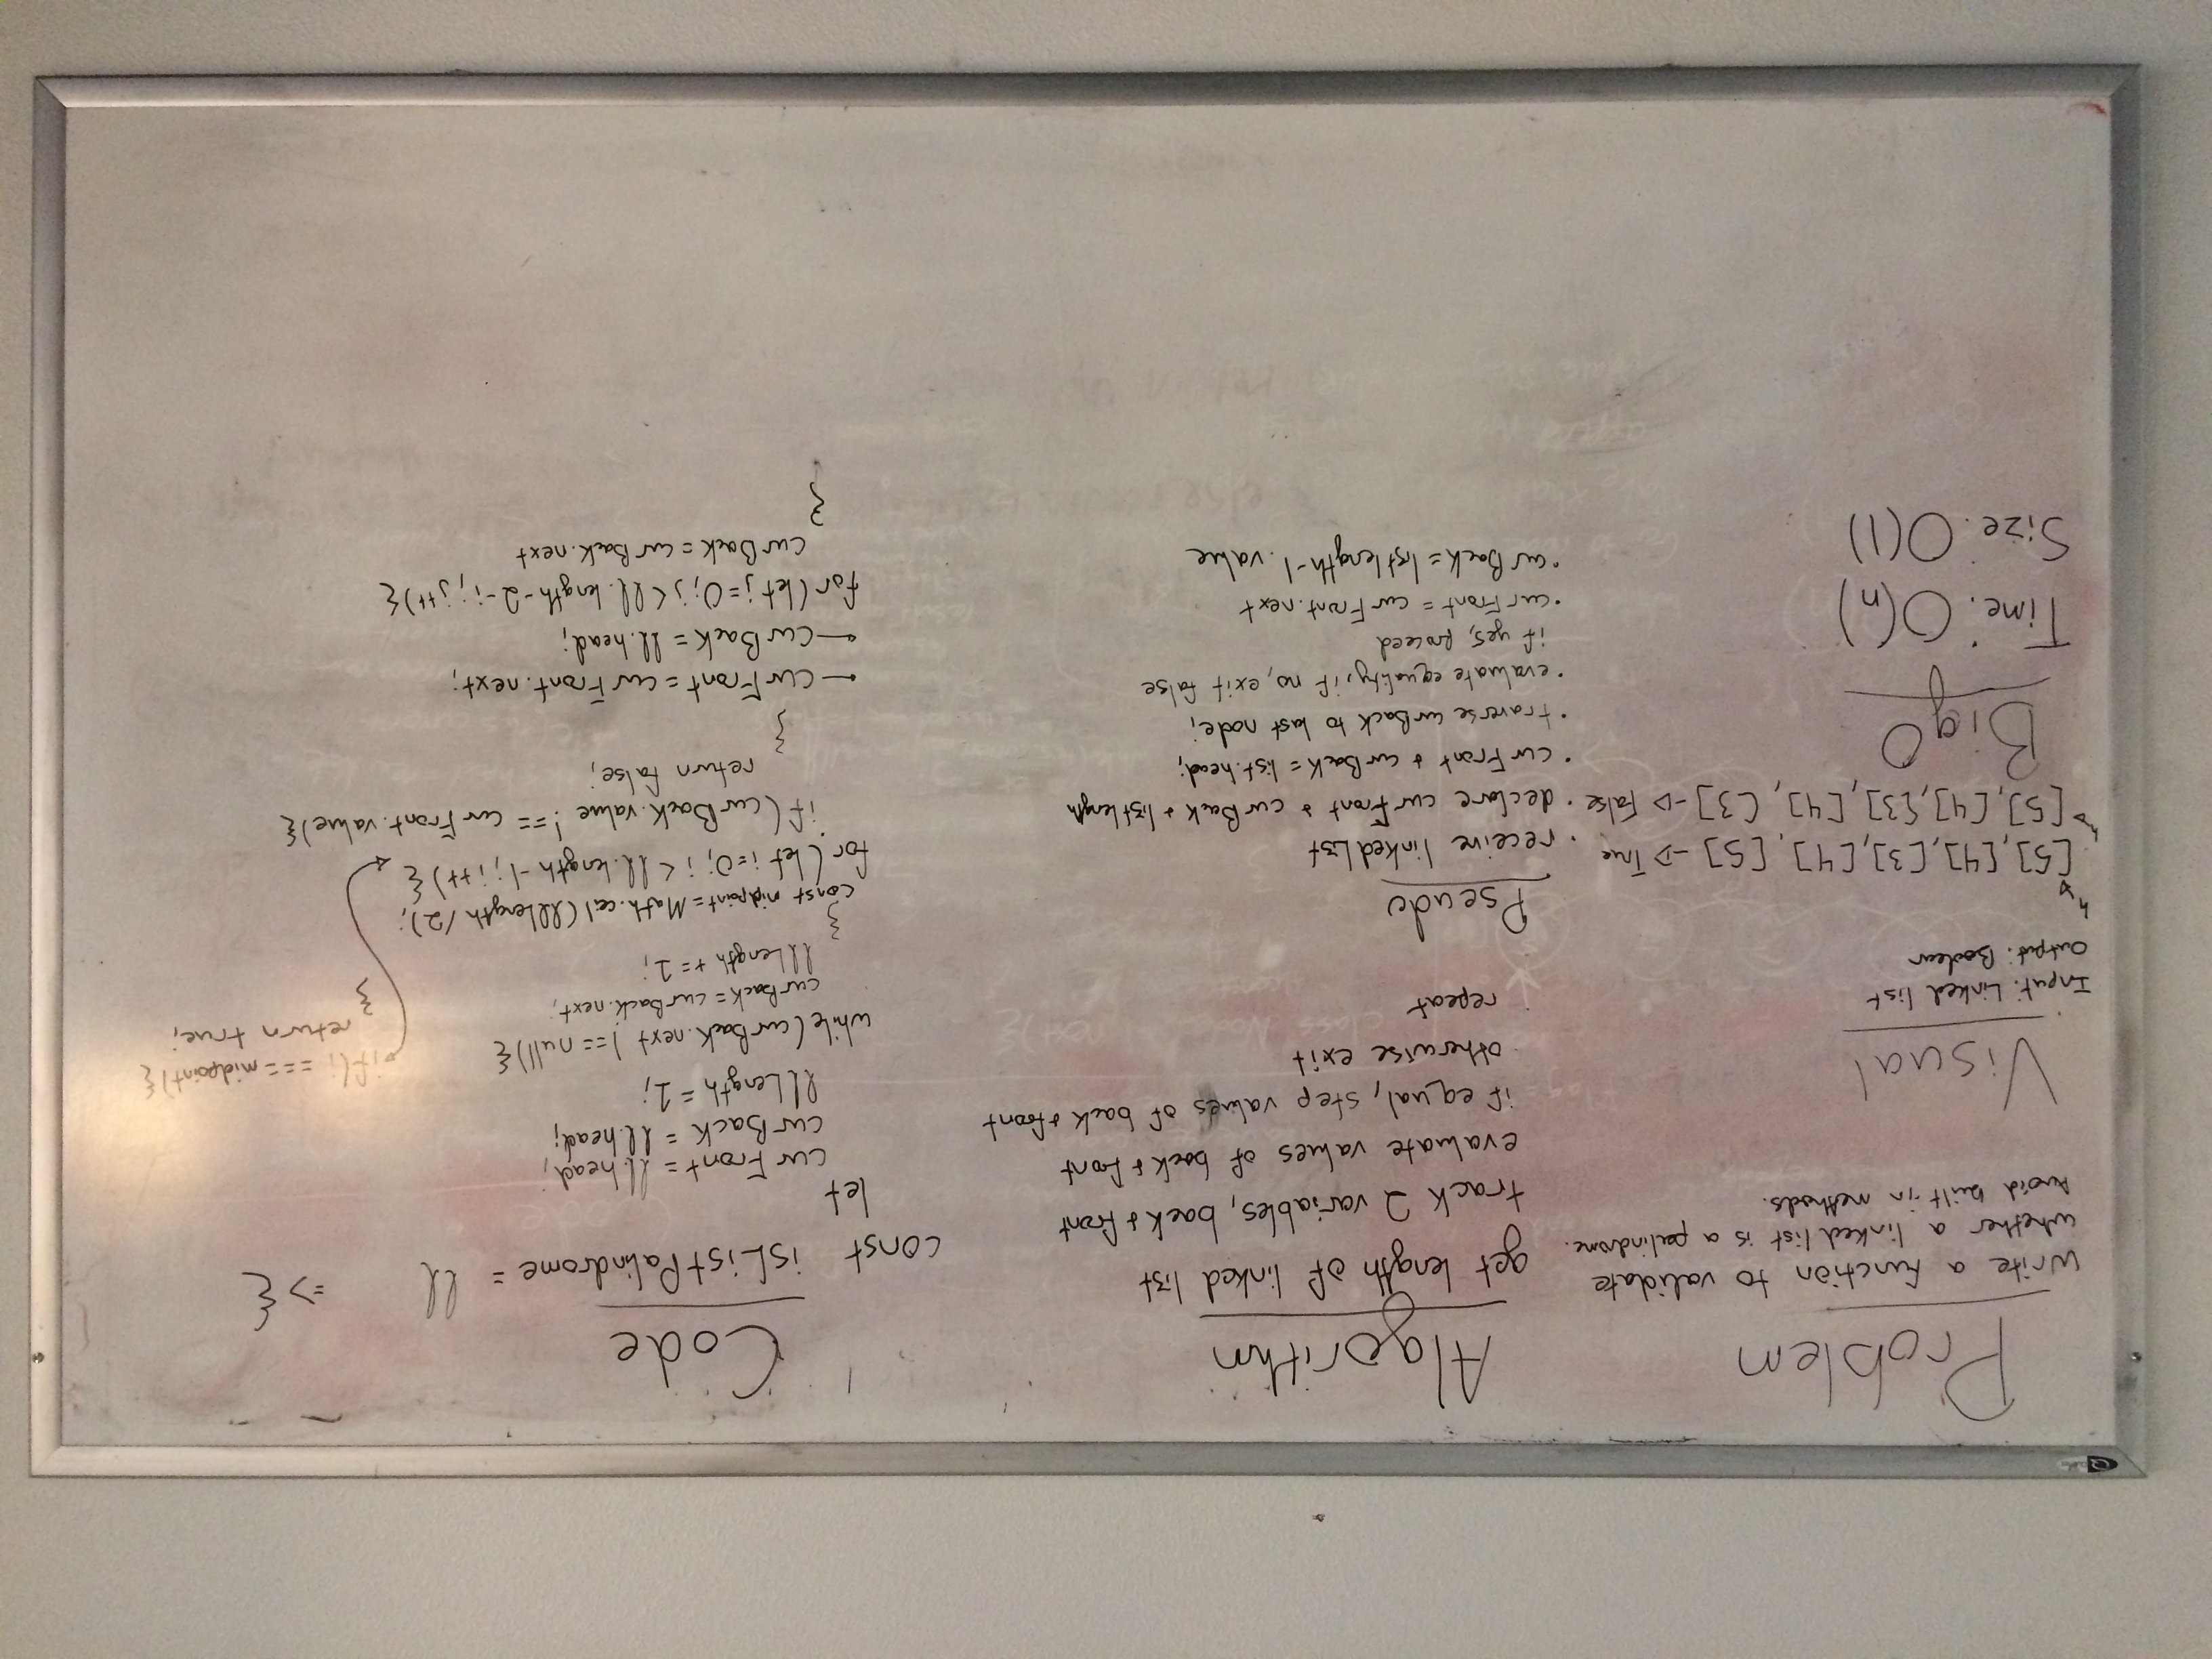 Problem
Write a function to validate
whether a linked list is a palindrome.
Avoid built-in methods.
Visual
Input: Linked list
Output: Boolean
h
[5], [4], [3], [4], [5] -> True
h
[5], [4], [3], [4], [3] -> False
Big O
Time: O(n)
Size: O(1)
Algorithm
get length of linked list
track 2 variables, back & front
evaluate values of back & front
if equal, step values of back & front
otherwise exit
repeat
Pseudo
· receive linked List
· declare curFront & curBack & list length
· curFront & curBack = list.head;
· traverse curBack to last node;
· evaluate equality, if no, exit false
if yes, proceed
· curFront = curFront.next
· curBack = list length-1.value
Code
const isListPalindrome = ll => {
let
curFront = ll.head;
curBack = ll.head;
llLength = 1;
while(curBack.next !== null){
curBack = curBack.next;
llLength += 1;
}
const midpoint = Math.ceil(llLength/2);
for(let i=0; i < ll.length-1; i++){
if(i === midpoint){
return true;
}
if(curBack.value !== curFront.value){
return false;
}
curFront = curFront.next;
curBack = ll.head;
for(let j=0; j<ll.length-2-i; j++){
curBack = curBack.next
}